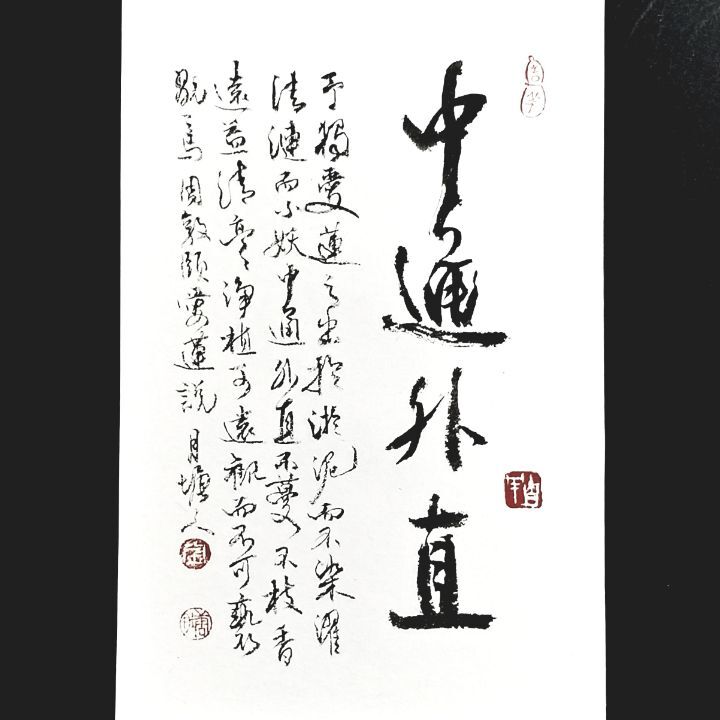 中通外直
予獨愛蓮之出於淤泥而不染濯
清漣而不妖中通外直不蔓不枝香
遠益清亭々淨植可遠觀而不可褻
翫焉周敦頤愛蓮說 月塘人